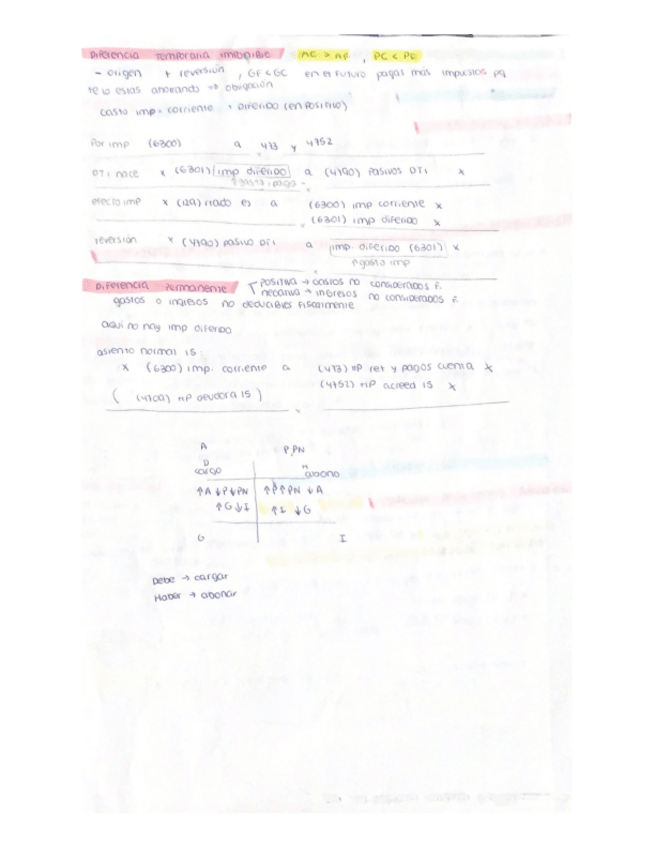 Diferencia temporaria imponible / AC > AF, PC < PF
- origen + reversión, GF < GC en el futuro pagas más impuestos pq
te lo estas ahorrando → obligación
Gasto imp = corriente + diferido (en positivo)
Por imp (6300) a 473 y 4752
DTI nace x (6301) imp diferido a (4790) Pasivos DTI x
efecto imp x (129) rtado ej a (6300) imp corriente x
(6301) imp diferido x
reversión x (4790) pasivo DTI a imp. diferido (6301) x
↑gasto imp
Diferencia permanente positiva → gastos no considerados F.
negativa → ingresos no considerados F.
gastos o ingresos no deducibles fiscalmente
aquí no hay imp diferido
asiento normal IS:
x (6300) imp. corriente a (473) HP ret y pagos cuenta x
( (4709) HP deudora IS ) (4752) HP acreed IS x
A P, PN
D H
cargo abono
↑A ↓P ↓PN ↑P ↑PN ↓A
↑G ↓I ↑I ↓G
G I
Debe → cargar
Haber → abonar